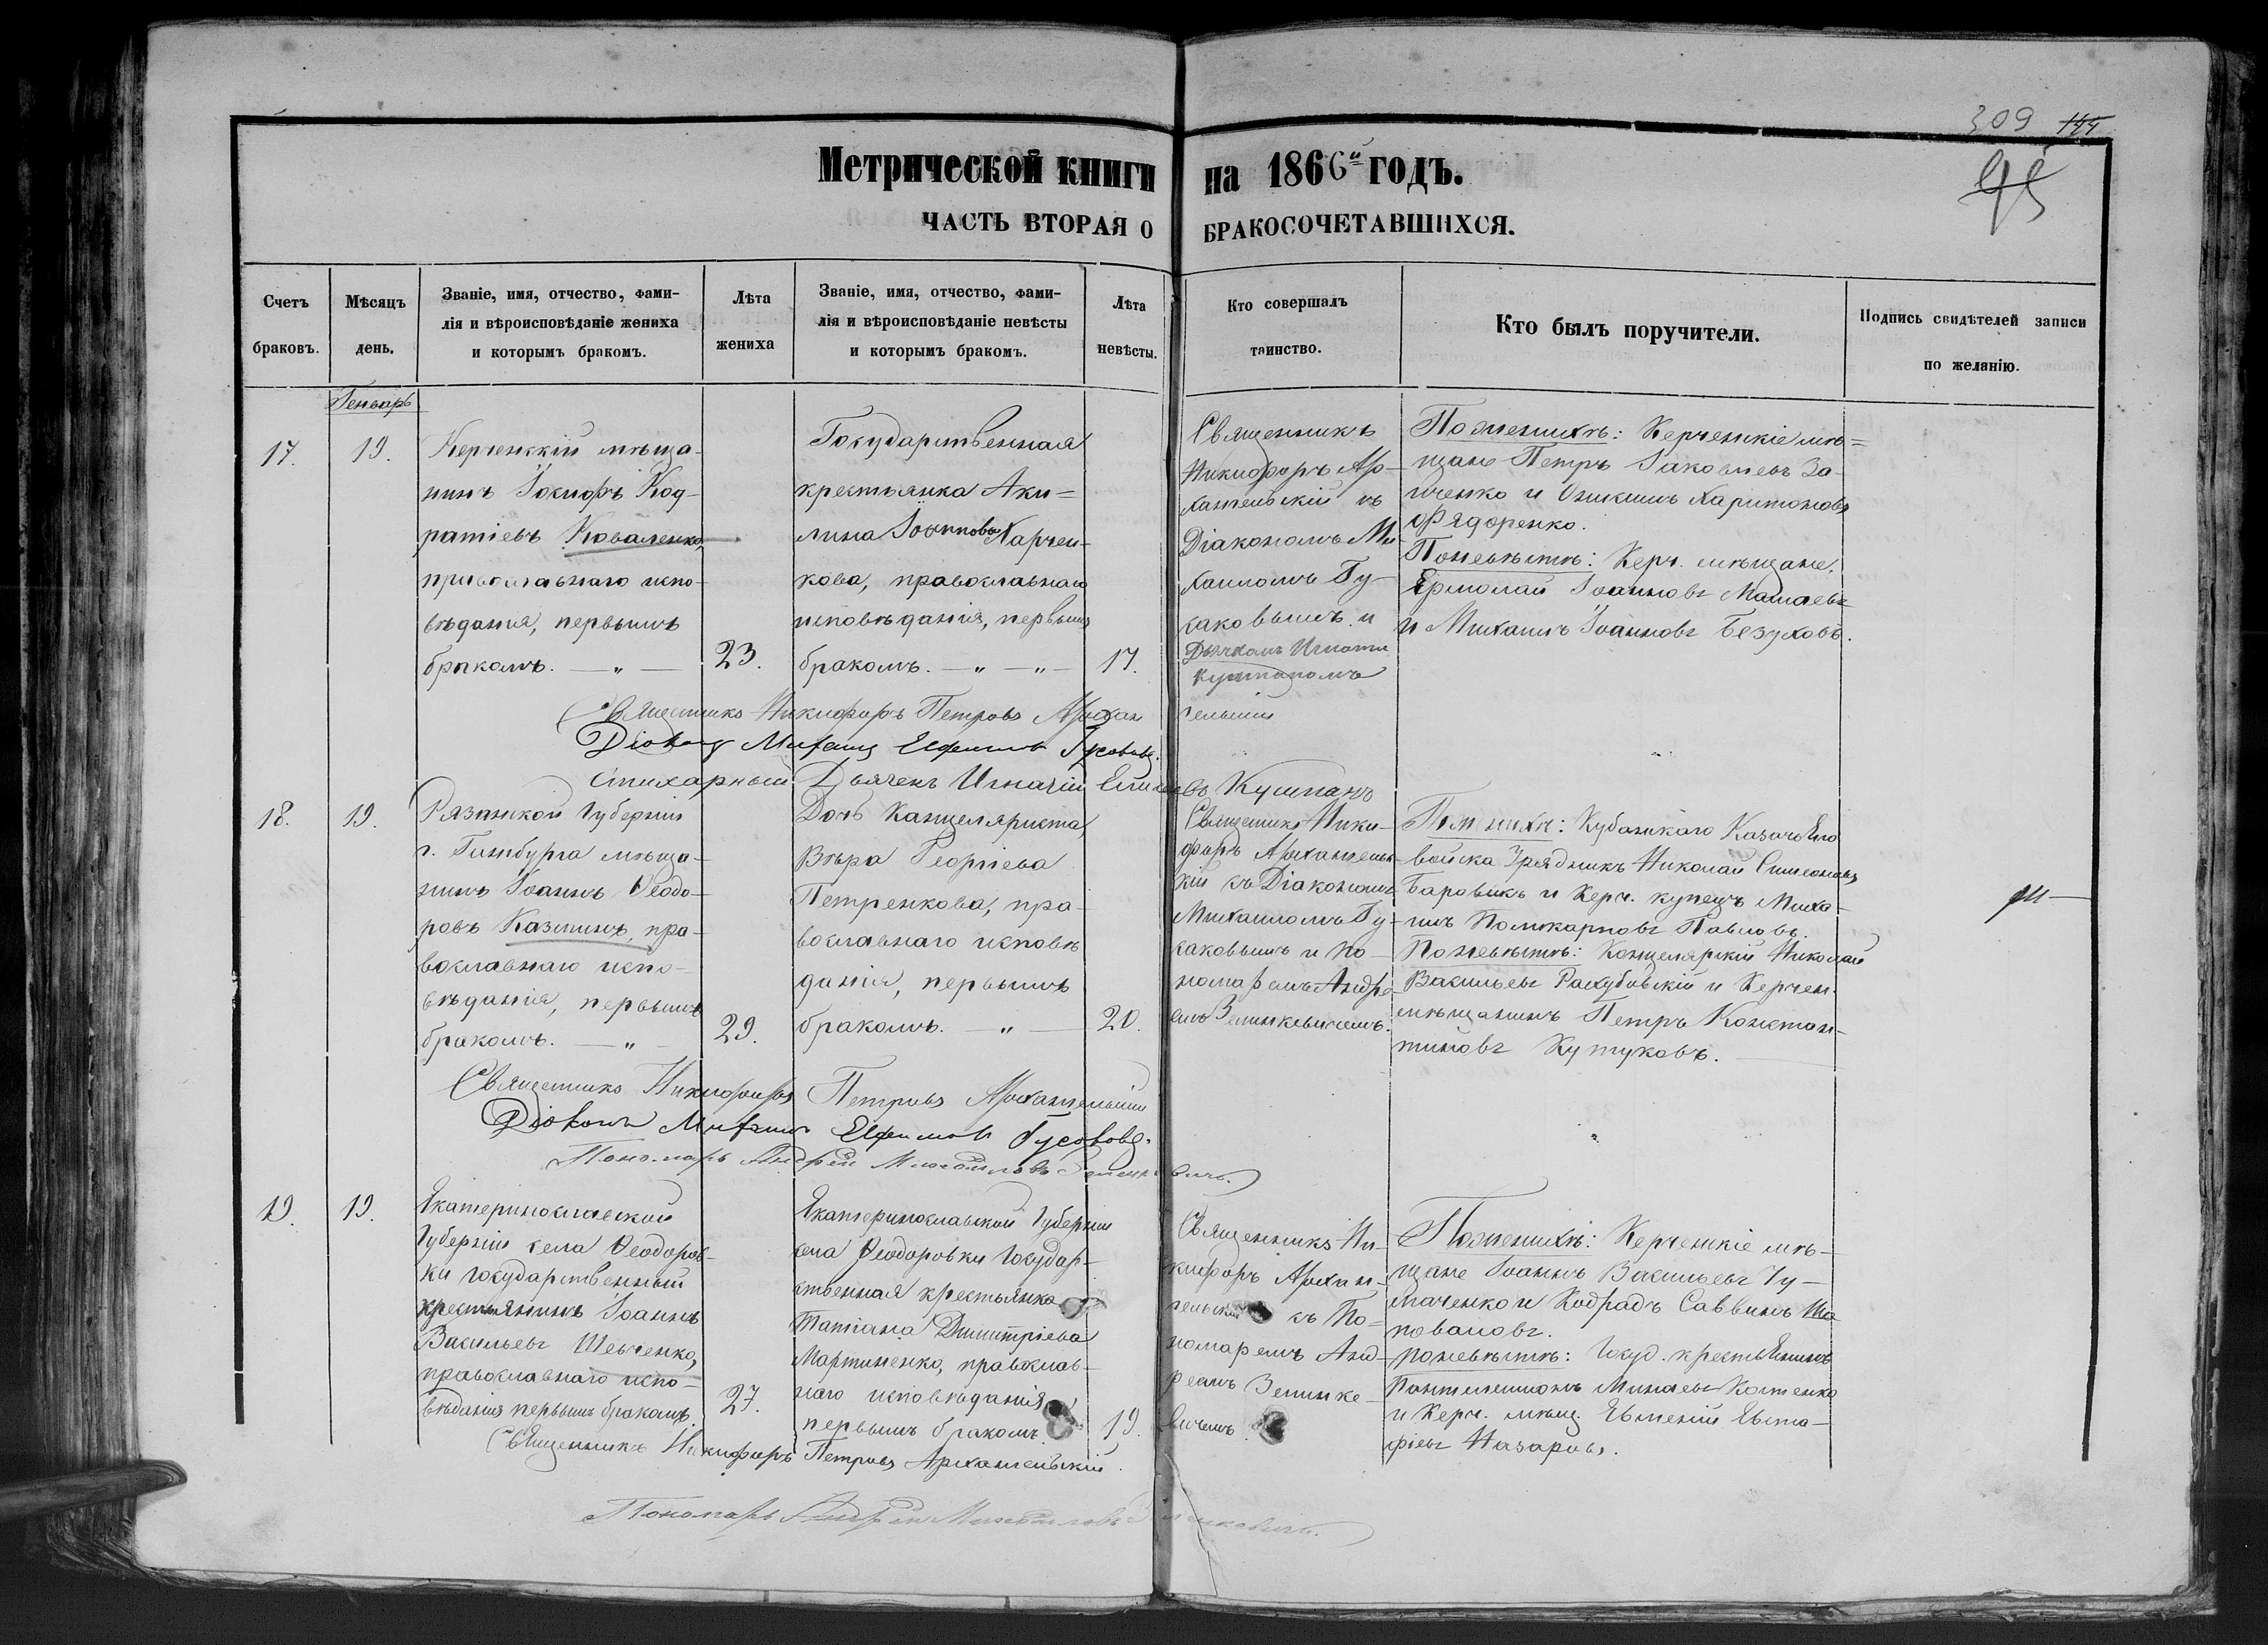 309 144
95
Метрической книги на 1866й годъ.
ЧАСТЬ ВТОРАЯ О БРАКОСОЧЕТАВШИХСЯ.
Счетъ браковъ.
Мѣсяцъ день.
Званіе, имя, отчество, фами-
лія и вѣроисповѣданіе жениха
и которымъ бракомъ.
Лѣта жениха
Званіе, имя, отчество, фами-
лія и вѣроисповѣданіе невѣсты
и которымъ бракомъ.
Лѣта невѣсты.
Кто совершалъ
таинство.
Кто былъ поручители.
Подпись свидѣтелей записи
по желанію.
Генварь
17.
19.
Керченскій мѣща-
нинъ Іосифъ Код-
ратіевъ Коваленко,
православнаго испо-
вѣданія, первымъ
бракомъ. — „ —
23.
Государственная
крестьянка Аки=
лина Харчен-
кова, православнаго
исповѣданія, первымъ
бракомъ. — „ — „ —
17.
Священникъ
Никифоръ Ар-
хангельскій съ
Діакономъ Ми-
хаиломъ Гу-
саковымъ и
Дьячкомъ
Кушпаномъ
По женихѣ: Керченскіе мѣ=
щане Петръ Іаковлевъ За-
иченко и Харитоновъ
Фядоренко.
По невѣстѣ: Керч. мѣщане.
Ермолай Іоанновъ Мамаевъ
и Михаилъ Іоанновъ Безуховъ.
Священникъ Никифоръ Петровъ Архан гельскій
Діаконъ Михаилъ Ефимовъ Гусаковъ.
Стихарный Дьячекъ Игнатій Кушпанъ
18.
19.
Рязанской Губерніи
г. мѣща-
нинъ Іоаннъ Ѳеодо-
ровъ Казминъ, пра-
вославнаго испо-
вѣданія, первымъ
бракомъ. — „ —
29.
Дочь Канцеляриста,
Вѣра Георгіева
Петренкова, пра-
вославнаго исповѣ
данія, первымъ
бракомъ. „ —
20.
Священникъ Ники-
форъ Архангельс-
кій съ Діакономъ
Михаиломъ Гу-
саковымъ и По-
номаремъ Андре-
емъ Зелинкевичемъ.
По женихѣ: Кубанскаго Казачьяго
войска Урядникъ Николай Симеоновъ
Боровикъ и Керч. купецъ Миха-
илъ Поликарповъ Павловъ.
По невѣстѣ: Канцелярскій Николай
Васильевъ Рахубовскій и Керчен.
мѣщанинъ Петръ Констан-
тиновъ Кутуковъ.
Священникъ Никифоръ Петровъ Архангельскій
Діаконъ Михаилъ Ефимовъ Гусаковъ.
Пономарь Андрей Михайловъ Зелинкевичъ.
19.
19.
Екатеринославской
Губерніи села Ѳеодоров-
ки государственный
крестьянинъ Іоаннъ
Васильевъ Шевченко,
православнаго испо-
вѣданія первымъ бракомъ.
27.
Екатеринославской Губерніи
села Ѳеодоровки государ-
ственная крестьянка
Татіана Димитріева
Мартиненко, православ-
наго исповѣданія
первымъ бракомъ.
19.
Священникъ Ни-
кифоръ Архан-
гельскій съ По-
номаремъ Анд-
реемъ Зелинке-
вичемъ.
По женихѣ: Керченскіе мѣ-
щане Іоаннъ Васильевъ Чу-
маченко и Кодрадъ Саввинъ Ша
поваловъ.
По невѣстѣ: Госуд. крестьянинъ
Пантелеимонъ Минаевъ Костенко
и Керч. мѣщ. Евгеній Евста-
фіевъ Назаровъ.
Священникъ Никифоръ Петровъ Архангельскій.
Пономарь Андрей Михайловъ Зелинкевичъ.